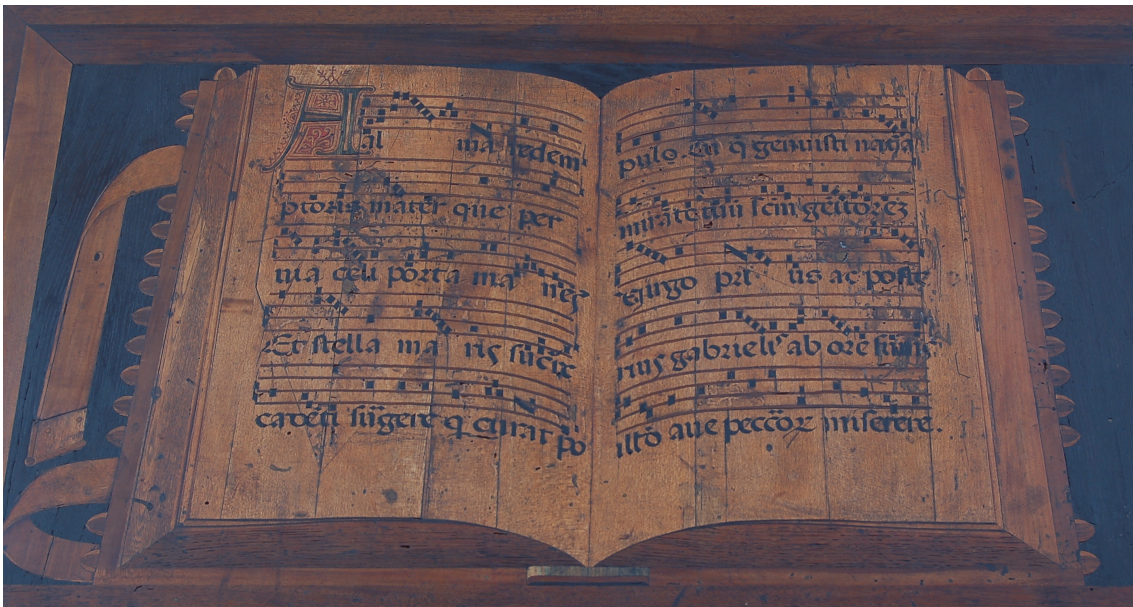 Aal ma redem
ptoris mater que per
uia celi porta ma nes
Et stella ma ris sucur
cadeti surgere q curat po
pulo. Tu q genuisti natura
mirate tuu scm genitorez
Uirgo pri us ac poste
rius gabrielis ab ore sumes
illud aue peccator miserere.